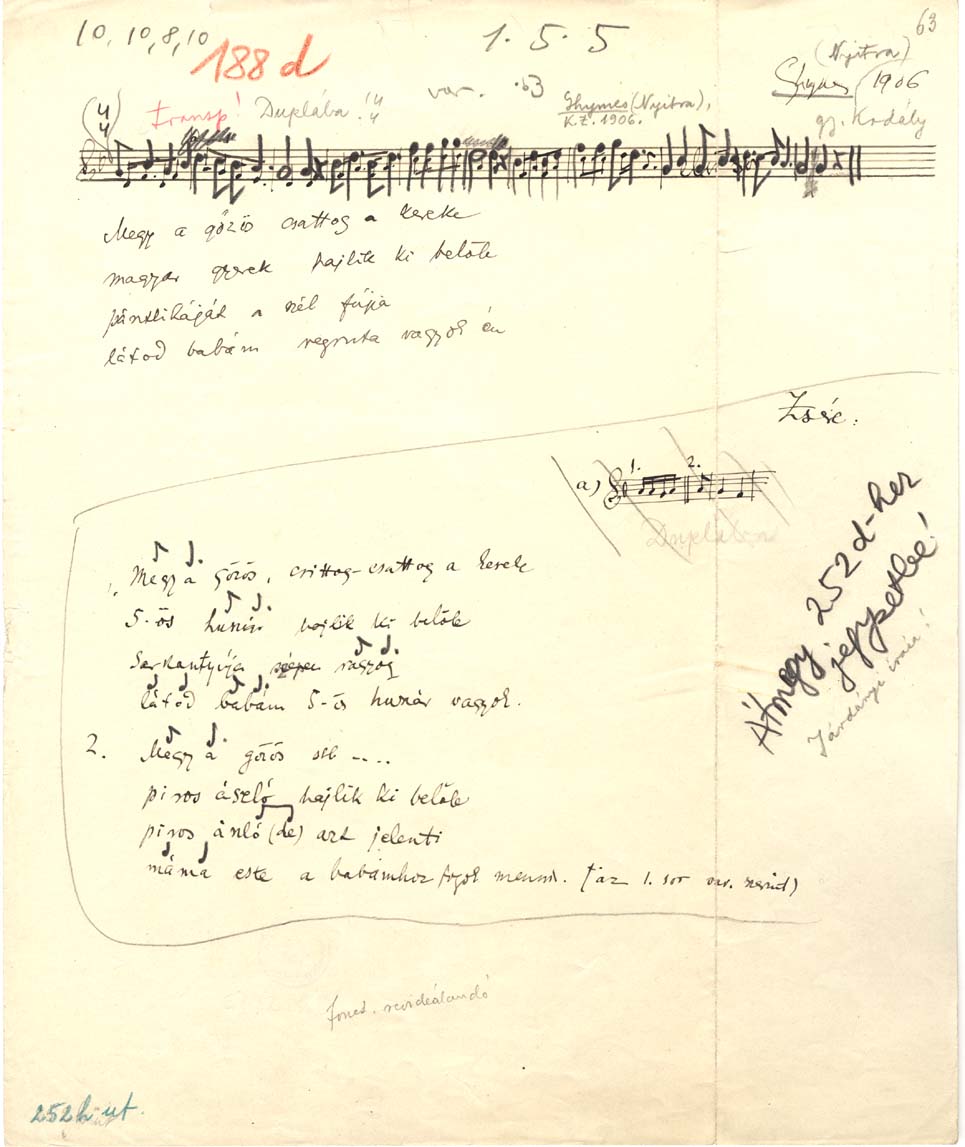 63
10, 10, 8, 10
1. 5. 5
188 d
(Nyitra)
Ghymes 1906
gy. Kodály
var. 63
transp! Duplába! 4/4
Ghymes (Nyitra),
K.Z. 1906.
(4/4)
Megy a gőzös csattog a kereke
magyar gyerek hajlik ki belőle
pántlikáját a szél fújja
látod babám regruta vagyok én
Zsére:
a) 1. 2.
Duplában
Megy a gőzös, csittog-csattog a kereke
5-ös huszár hajlik ki belőle
Sarkantyúja szépen ragyog
látod babám 5-ös huszár vagyok.
2. Megy a gőzös stb ----
piros ászló hajlik ki belőle
piros ászló (de) azt jelenti
máma este a babámhoz fogok menni. (az 1. sor var. szerint)
Átmegy 252 d-hez
jegyzetbe!
Járdányi írása!
fonet. revideálandó
252 h ut.